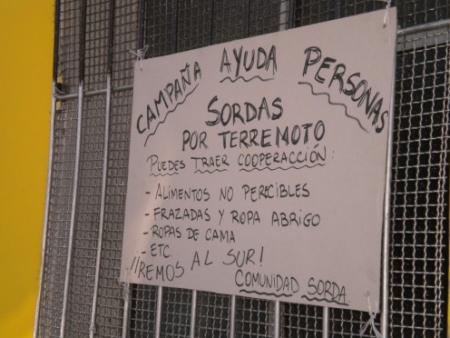 CAMPAÑA AYUDA PERSONAS
SORDAS
POR TERREMOTO
PUEDES TRAER COOPERACCIÓN:
- ALIMENTOS NO PERECIBLES
- FRAZADAS Y ROPA ABRIGO
- ROPAS DE CAMA
- ETC
¡¡IREMOS AL SUR!
COMUNIDAD SORDA